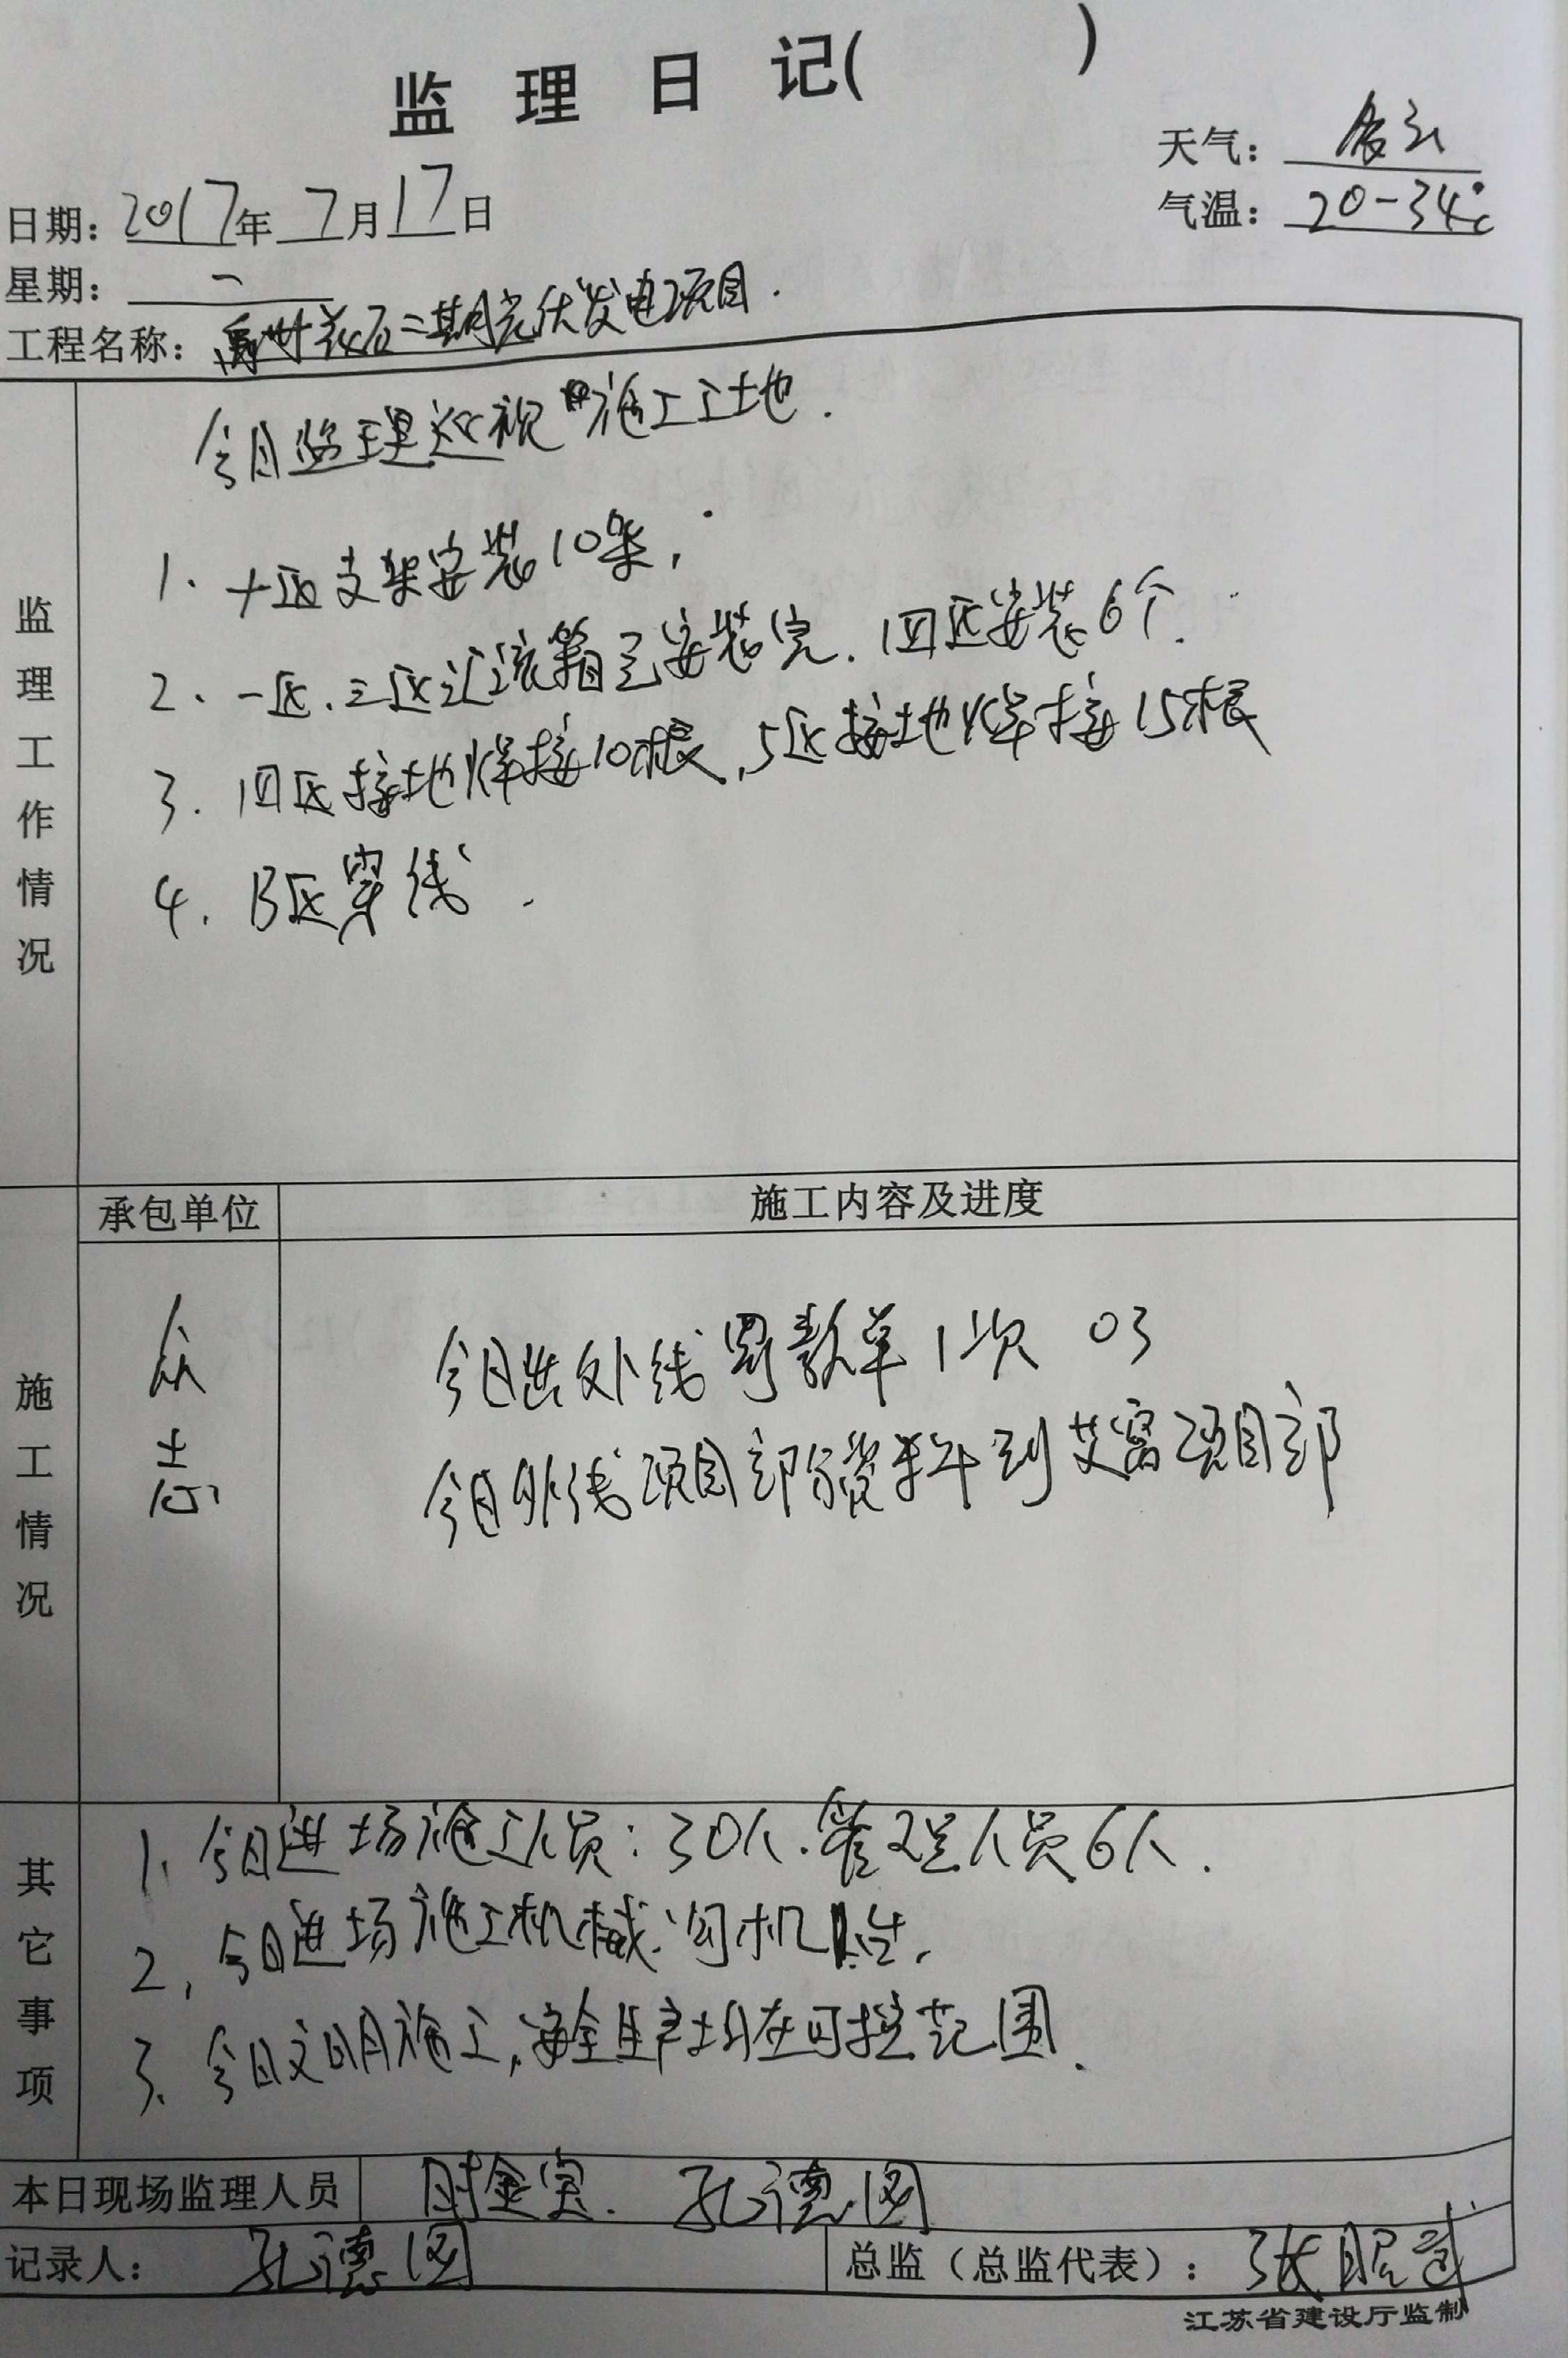 监理日记( )
天气: 多云
日期: 2017年7月17日
气温: 20-34℃
星期: 一
工程名称: 二期光伏发电项目.
监理工作情况
今日监理巡视 施工工地.
1. 十区支架安装10架,
2. 一区.三区汇流箱已安装完. 四区安装6个.
3. 四区接地焊接10根, 5区接地焊接15根
4. B区穿线.
承包单位
施工内容及进度
施工情况
众志
今日 外线 单1次 03
今日外线项目部 到艾窝项目部
其它事项
1. 今日进场施工人员: 30人. 管理人员6人.
2, 今日进场施工机械: 勾机1台.
3. 今日文明施工, 安全生产均在可控范围.
本日现场监理人员 时金宝. 孔德图
记录人: 孔德图
总监(总监代表): 张
江苏省建设厅监制